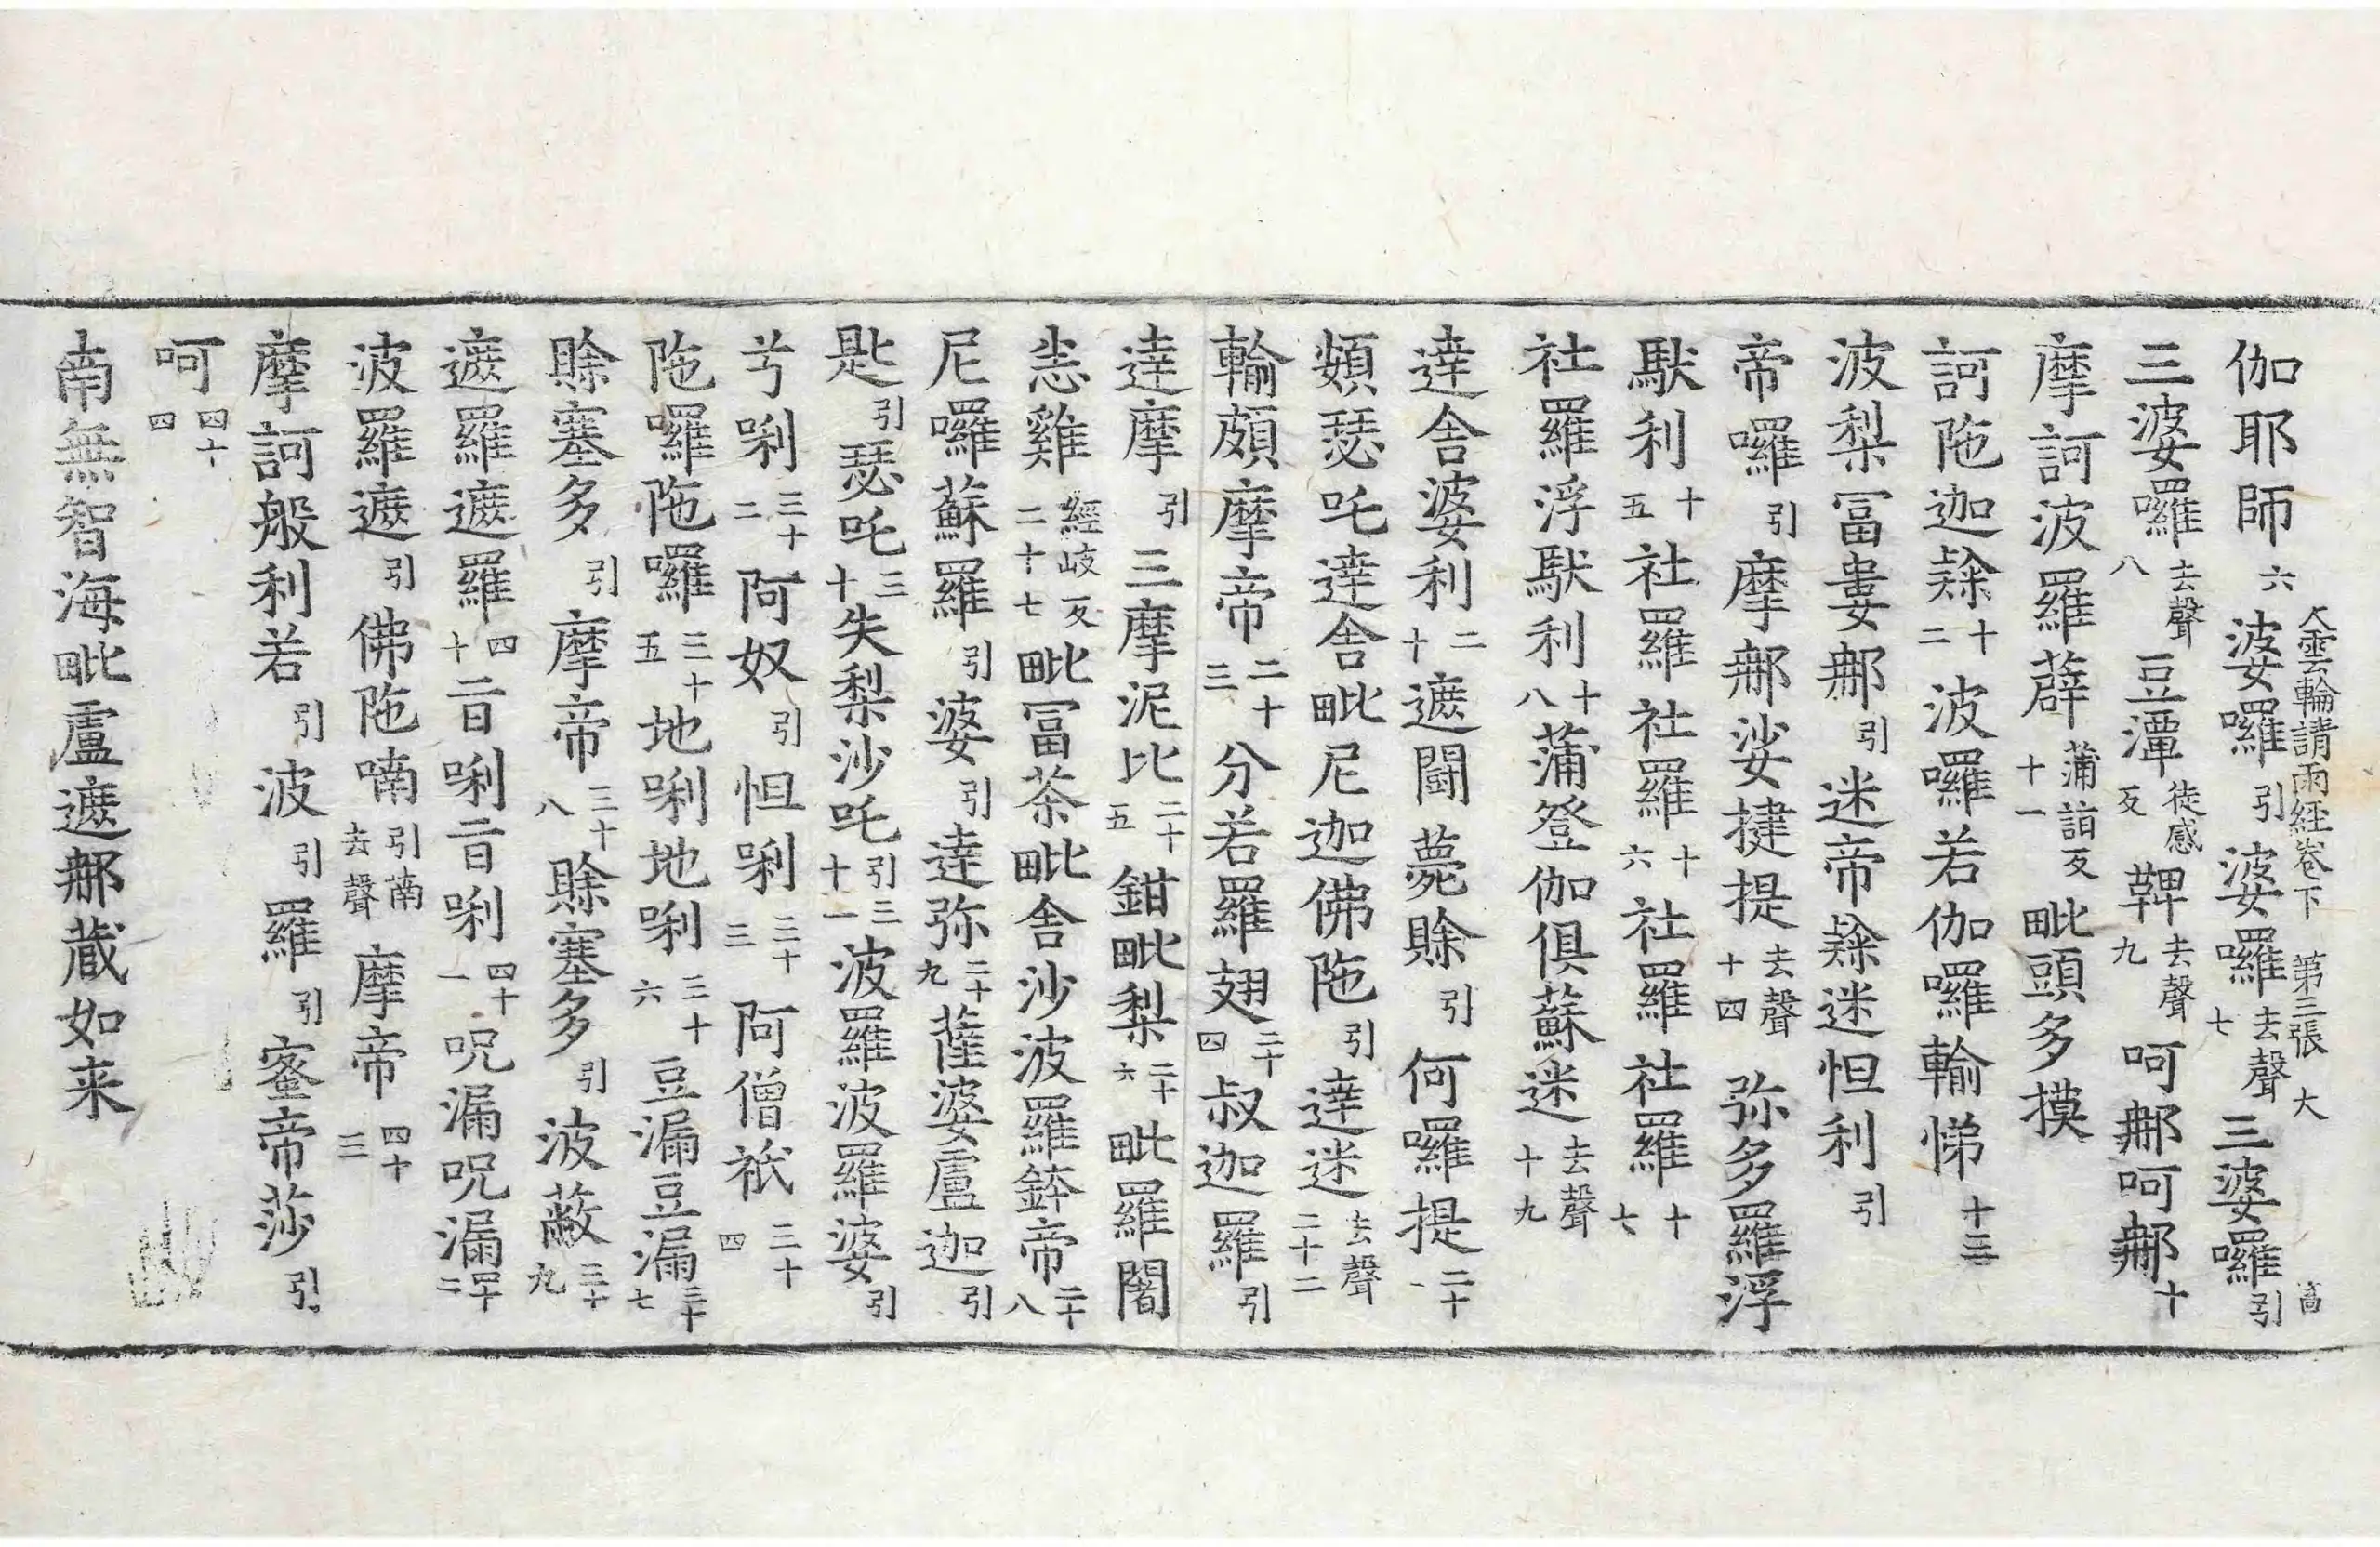 大雲輪請雨經卷下　第三張　大
伽耶師六婆囉引婆囉去聲七三婆囉引
三婆囉去聲八豆潭徒感反鞞去聲九呵那呵那十
摩訶波羅薜蒲詣反十一毗頭多摸
訶陁迦隸十二波囉若伽囉輸悌十三
波梨冨婁那引迷帝隸迷怛利引
帝囉引摩那娑揵提去聲十四弥多羅浮
馱利十五社羅社羅十六社羅社羅十七
社羅浮馱利十八蒲登伽俱蘇迷去聲十九
達舍婆利二十遮鬪薨賒引何囉提二十一
頞瑟吒達舍毗尼迦佛陁引達迷去聲二十二
輸頗摩帝二十三分若羅翅二十四叔迦羅引
達摩引三摩泥比二十五鉗毗梨二十六毗羅闍
恚雞經歧反二十七毗冨茶毗舍沙波羅鉢帝二十八
尼囉蘇羅引婆引達弥二十九薩婆盧迦引
匙引瑟吒三十失梨沙吒引三十一波羅波羅婆引
兮唎三十二阿奴引怛唎三十三阿僧祇三十四
陁囉陁囉三十五地唎地唎三十六豆漏豆漏三十七
賒塞多引摩帝三十八賒塞多引波蔽三十九
遮羅遮羅四十旨唎旨唎四十一呪漏呪漏四十二
波羅遮引佛陁喃引南去聲摩帝四十三
摩訶般利若引波引羅引蜜帝莎引
呵四十四
南無智海毗盧遮那藏如来